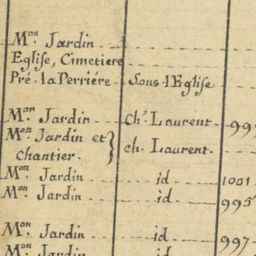 Mon. Jardin
Eglise, Cimetiere
Pré. la Perriére Sous l'Eglise
Mon. Jardin ch. Laurent. 99
Mon. Jardin et
chantier. } ch. Laurent.
Mon. Jardin id 1001
Mon. Jardin id 995
Mon. Jardin id 997
Mon. Jardin id